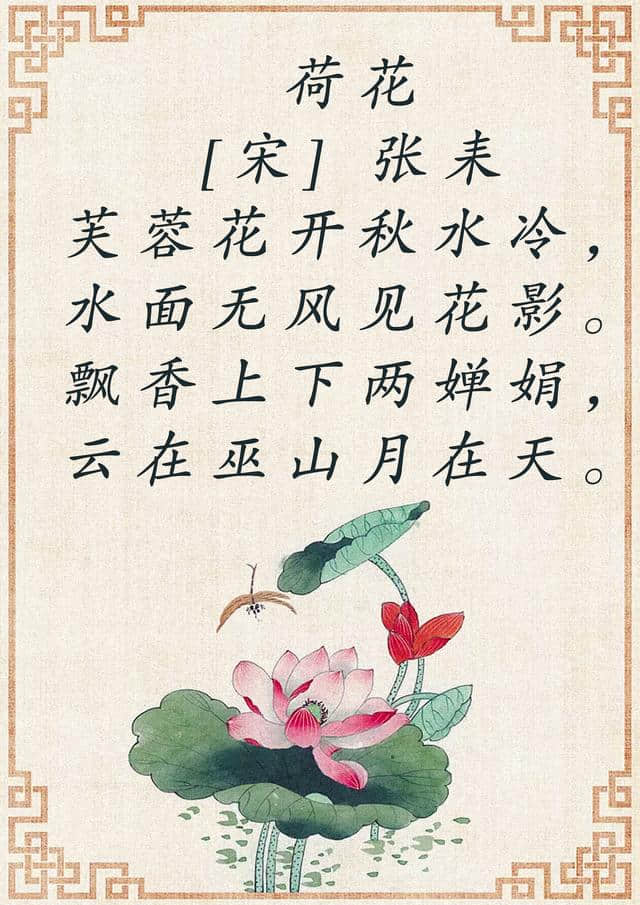 荷花
[宋] 张耒
芙蓉花开秋水冷，
水面无风见花影。
飘香上下两婵娟，
云在巫山月在天。